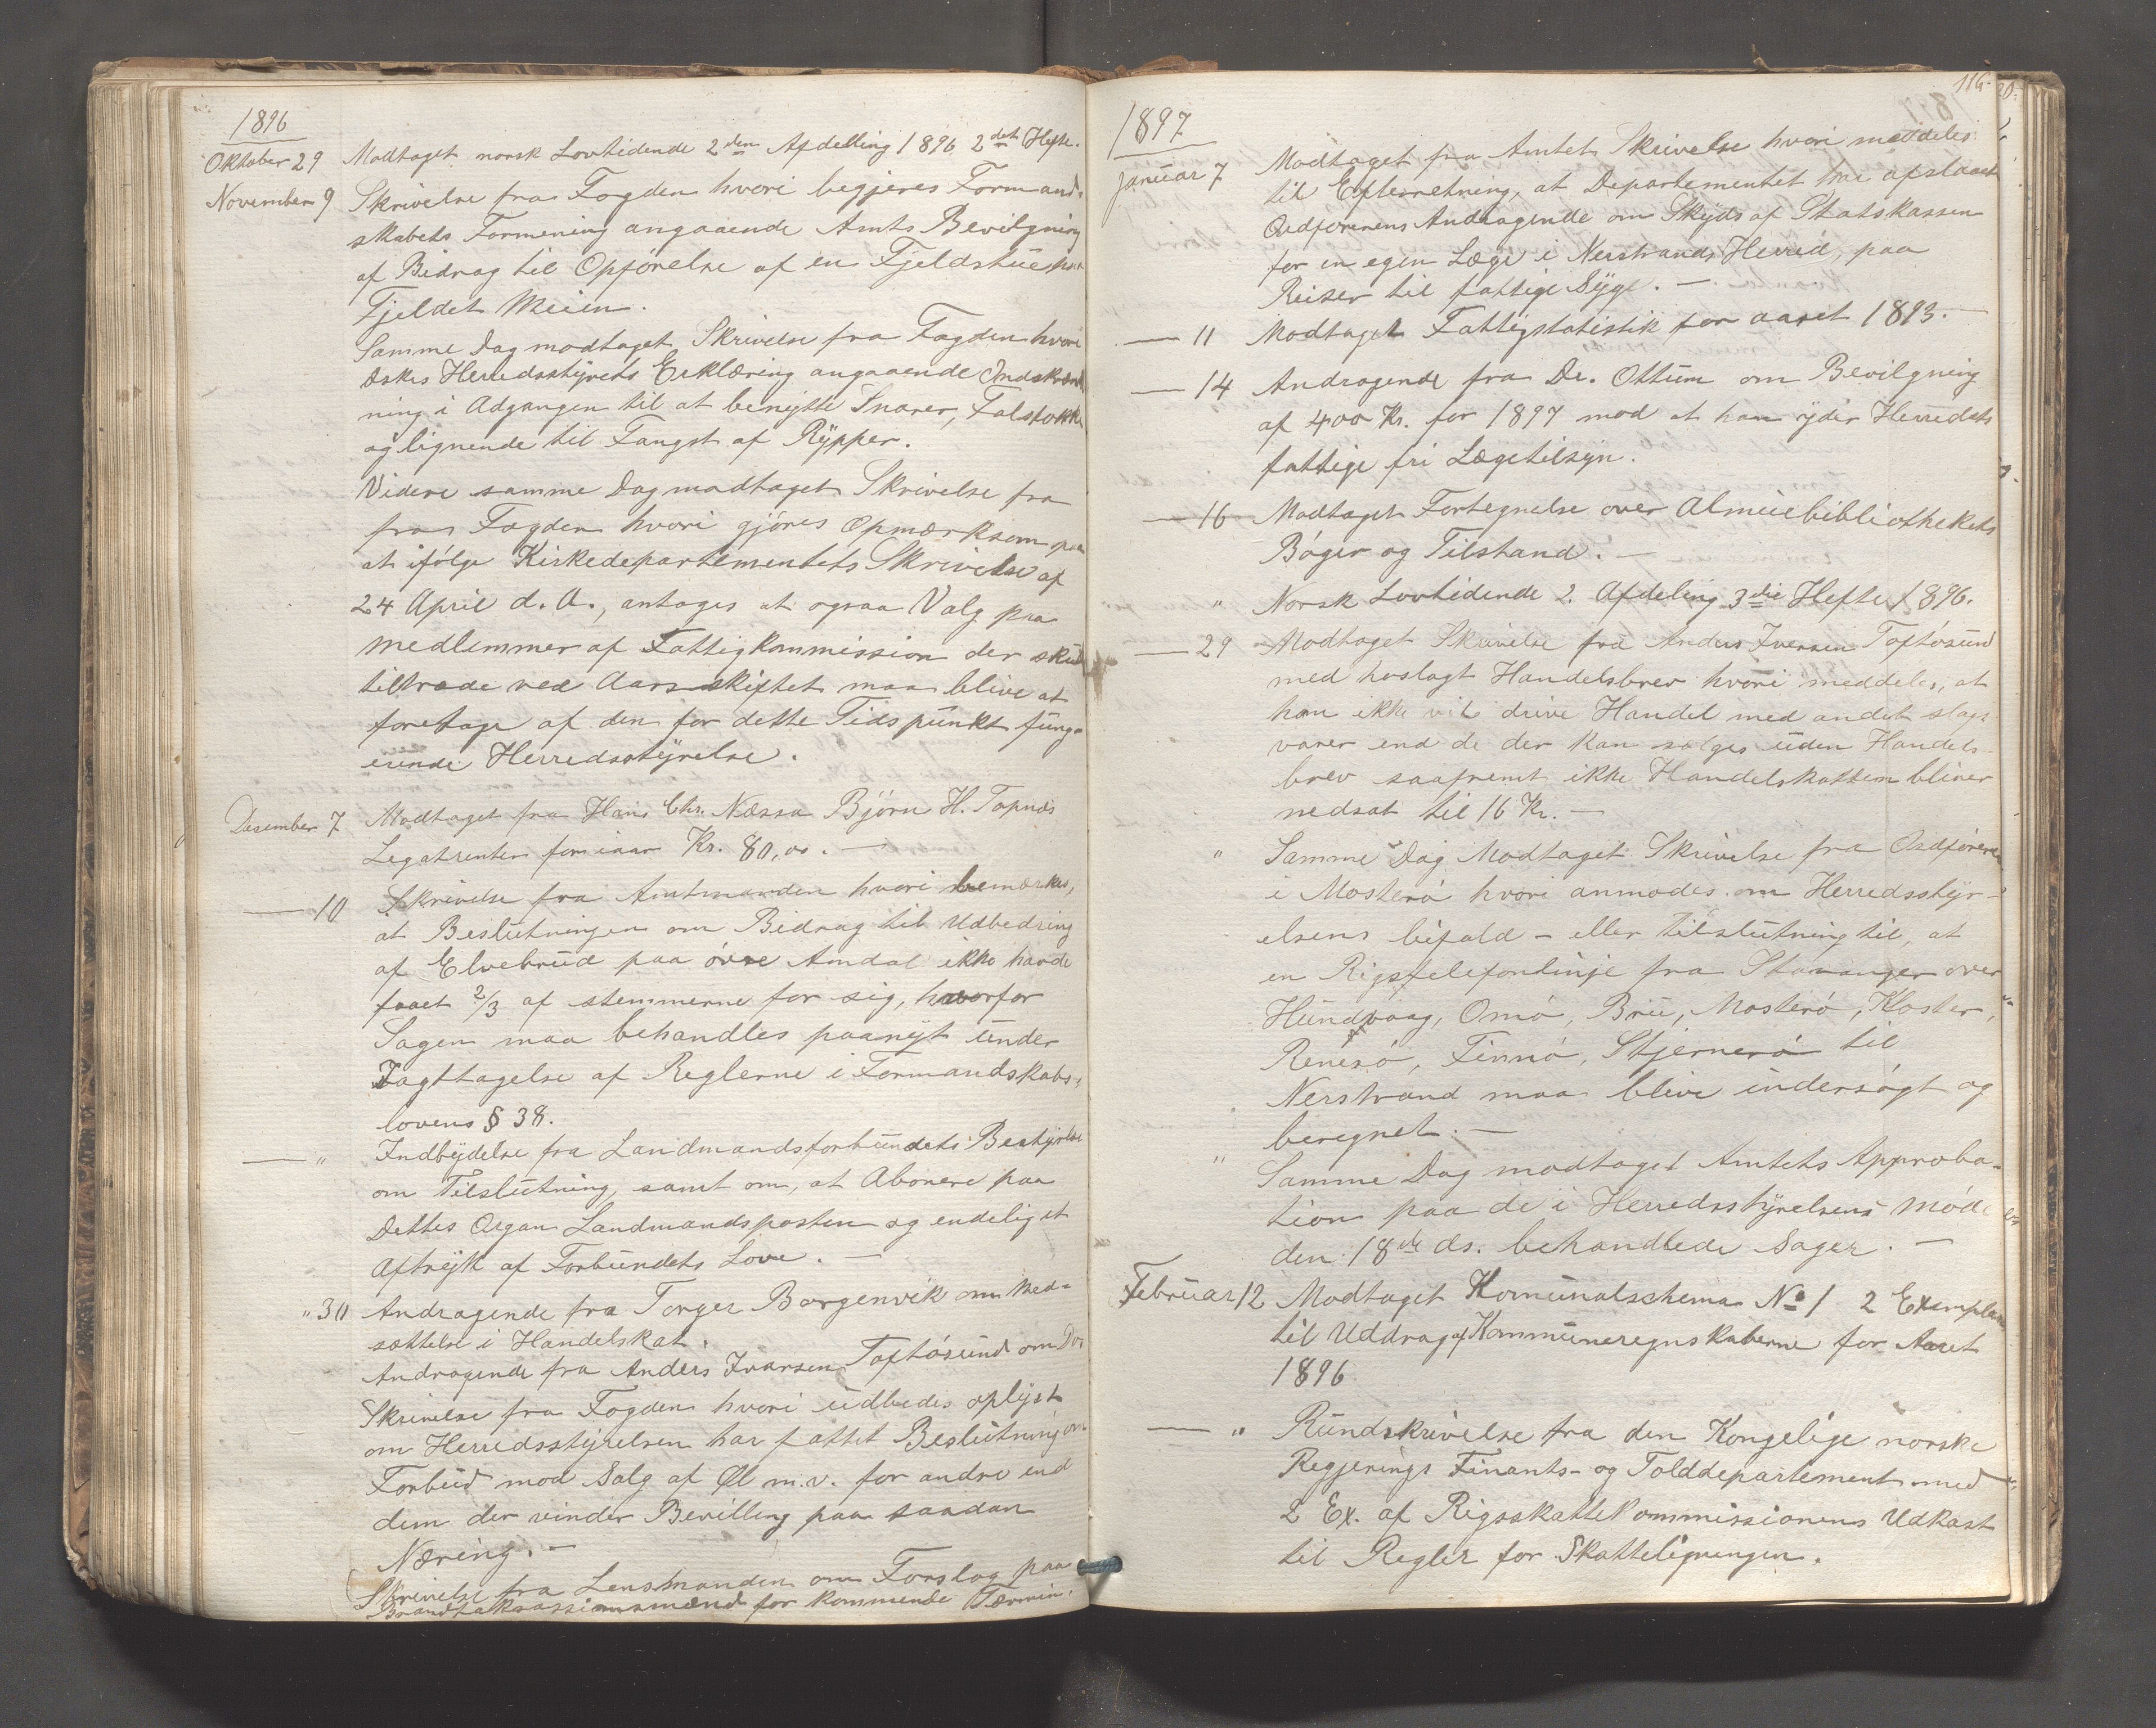 1896
Oktober 29 Modtaget norsk Lovtidende 2den Afdelling 1896 2det Hefte.
November 9 Skrivelse fra Fogden hvori begjeres Formand-
skabets Formening angaaende Amts Bevilgning
af Bidrag til Opførelse af en Fjeldstue paa
Fjeldet Meien.
Samme Dag modtaget Skrivelse fra Fogden hvori
æskes Herredsstyrets Erklæring angaaende Indskrænk
ning i Adgangen til at benytte Snarer, Falstokke
og lignende til Fangst af Rypper.
Videre samme Dag modtaget Skrivelse fra
fra Fogden hvori gjøres Opmærksom paa
at ifølge Kirkedepartementets Skrivelse af
24 April d. A., antages at ogsaa Valg paa
medlemmer af Fattigkommission der skul
tiltræde ved Aarsskiftet maa blive at
foretage af den før dette Tidspunkt fung-
erende Herredsstyrelse.
Desember 7 Modtaget fra Hans Chr. Næssa Bjørn H. Tapnes
Legatrenter for iaar Kr. 80,00. —
— 10 Skrivelse fra Amtmanden hvori bemærkes,
at Beslutningen om Bidrag til Udbedring
af Elvebrud paa øvre Amdal ikke havde
faaet 2/3 af stemmerne for sig, hvorfor
Sagen maa behandles paanyt under
Iagttagelse af Reglerne i Formandskabs-
lovens § 38.
— " Indbydelse fra Landmandsforbundets Bestyrelse
om Tilslutning, samt om, at Abonere paa
Dettes Organ Landmandsposten og endelig et
Aftryk af Forbundets Love. —
" 30 Andragende fra Torger Borgenvik om Ned-
sættelse i Handelskat.
Andragende fra Anders Ivarsen Toftøsund om Do.
Skrivelse fra Fogden hvori udbedes oplyst
om Herredsstyrelsen har fattet Beslutning om
Forbud mod Salg af Øl m.v. for andre end
dem der vinder Bevilling paa saadan
Næring. —
Skrivelse fra Lensmanden om Forslag paa
Brandtaxasionsmænd for kommende Termin.
116.
1897
Januar 7 Modtaget fra Amtet Skrivelse hvori meddeles
til Efterretning, at Departementet har afslaaet
Ordførerens Andragende om Skyds af Statskassen
for en egen Læge i Nerstrands Herred, paa
Reiser til fattige Syge. —
— 11 Modtaget Fattigstatistik for aaret 1893. —
— 14 Andragende fra Dr. Ottum om Bevilgning
af 400 Kr. for 1897 mod at han yder Herredets
fattige fri Lægetilsyn.
— 16 Modtaget Fortegnelse over Almuebibliothekets
Bøger og Tilstand. —
" Norsk Lovtidende 2. Afdeling 3die Hefte 1896.
— 29 Modtaget Skrivelse fra Anders Iversen Toftøsund
med hoslagt Handelsbrev hvori meddeles, at
han ikke vil drive Handel med andet slags
varer end de der kan sælges uden Handels-
brev saafremt ikke Handelskatten bliver
nedsat til 16 Kr. —
" Samme Dag Modtaget Skrivelse fra Ordføreren
i Mosterø hvori anmodes om Herredsstyr-
elsens bifald - eller tilslutning til, at
en Rigstelefonlinje fra Stavanger over
Hundvaag, Omø, Bru, Mosterø, Kloster,
Renesø, Finnø, Stjernerø til
Nerstrand maa blive undersøgt og
beregnet. —
" Samme Dag modtaget Amtets Approba-
tion paa de i Herredsstyrelsens møde
den 18de ds. behandlede Sager. —
Februar 12 Modtaget Komunalschema No 1 2 Exemplar
til Uddrag af Kommuneregnskaberne for Aaret
1896
— " Rundskrivelse fra den Kongelige norske
Regjerings Finants- og Tolddepartement med
2 Ex. af Rigsskattekommissionens Udkast
til Regler for Skatteligningen.